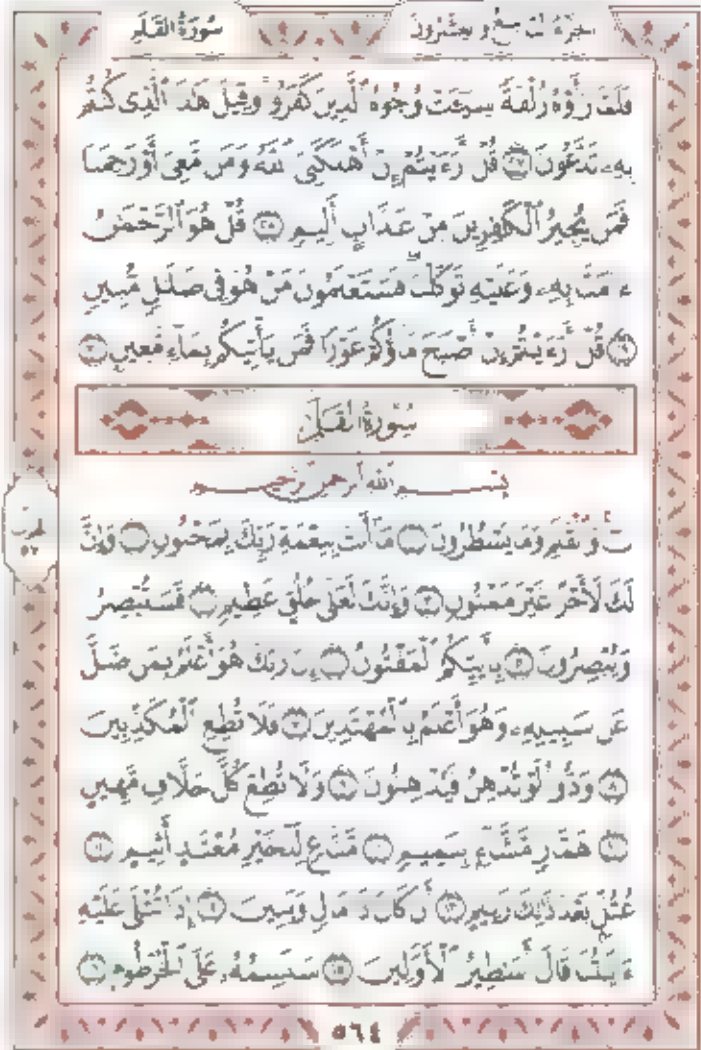 سُورَةُ القَلَمِ
الجُزْءُ التَّاسِعُ وَالعِشْرُونَ
فَلَمَّا رَأَوْهُ زُلْفَةً سِيٓـَٔتْ وُجُوهُ ٱلَّذِينَ كَفَرُوا۟ وَقِيلَ هَـٰذَا ٱلَّذِى كُنتُم
بِهِۦ تَدَّعُونَ ٢٧ قُلْ أَرَءَيْتُمْ إِنْ أَهْلَكَنِىَ ٱللَّهُ وَمَن مَّعِىَ أَوْ رَحِمَنَا
فَمَن يُجِيرُ ٱلْكَـٰفِرِينَ مِنْ عَذَابٍ أَلِيمٍ ٢٨ قُلْ هُوَ ٱلرَّحْمَـٰنُ
ءَامَنَّا بِهِۦ وَعَلَيْهِ تَوَكَّلْنَا فَسَتَعْلَمُونَ مَنْ هُوَ فِى ضَلَـٰلٍ مُّبِينٍ
٢٩ قُلْ أَرَءَيْتُمْ إِنْ أَصْبَحَ مَآؤُكُمْ غَوْرًا فَمَن يَأْتِيكُم بِمَآءٍ مَّعِينٍ ٣٠
سُورَةُ القَلَمِ
بِسْمِ ٱللَّهِ ٱلرَّحْمَـٰنِ ٱلرَّحِيمِ
نٓ وَٱلْقَلَمِ وَمَا يَسْطُرُونَ ١ مَآ أَنتَ بِنِعْمَةِ رَبِّكَ بِمَجْنُونٍ ٢ وَإِنَّ
لَكَ لَأَجْرًا غَيْرَ مَمْنُونٍ ٣ وَإِنَّكَ لَعَلَىٰ خُلُقٍ عَظِيمٍ ٤ فَسَتُبْصِرُ
وَيُبْصِرُونَ ٥ بِأَييِّكُمُ ٱلْمَفْتُونُ ٦ إِنَّ رَبَّكَ هُوَ أَعْلَمُ بِمَن ضَلَّ
عَن سَبِيلِهِۦ وَهُوَ أَعْلَمُ بِٱلْمُهْتَدِينَ ٧ فَلَا تُطِعِ ٱلْمُكَذِّبِينَ
٨ وَدُّوا۟ لَوْ تُدْهِنُ فَيُدْهِنُونَ ٩ وَلَا تُطِعْ كُلَّ حَلَّافٍ مَّهِينٍ
١٠ هَمَّازٍ مَّشَّآءٍۭ بِنَمِيمٍ ١١ مَّنَّاعٍ لِّلْخَيْرِ مُعْتَدٍ أَثِيمٍ ١٢
عُتُلٍّۭ بَعْدَ ذَٰلِكَ زَنِيمٍ ١٣ أَن كَانَ ذَا مَالٍ وَبَنِينَ ١٤ إِذَا تُتْلَىٰ عَلَيْهِ
ءَايَـٰتُنَا قَالَ أَسَـٰطِيرُ ٱلْأَوَّلِينَ ١٥ سَنَسِمُهُۥ عَلَى ٱلْخُرْطُومِ ١٦
٥٦٤